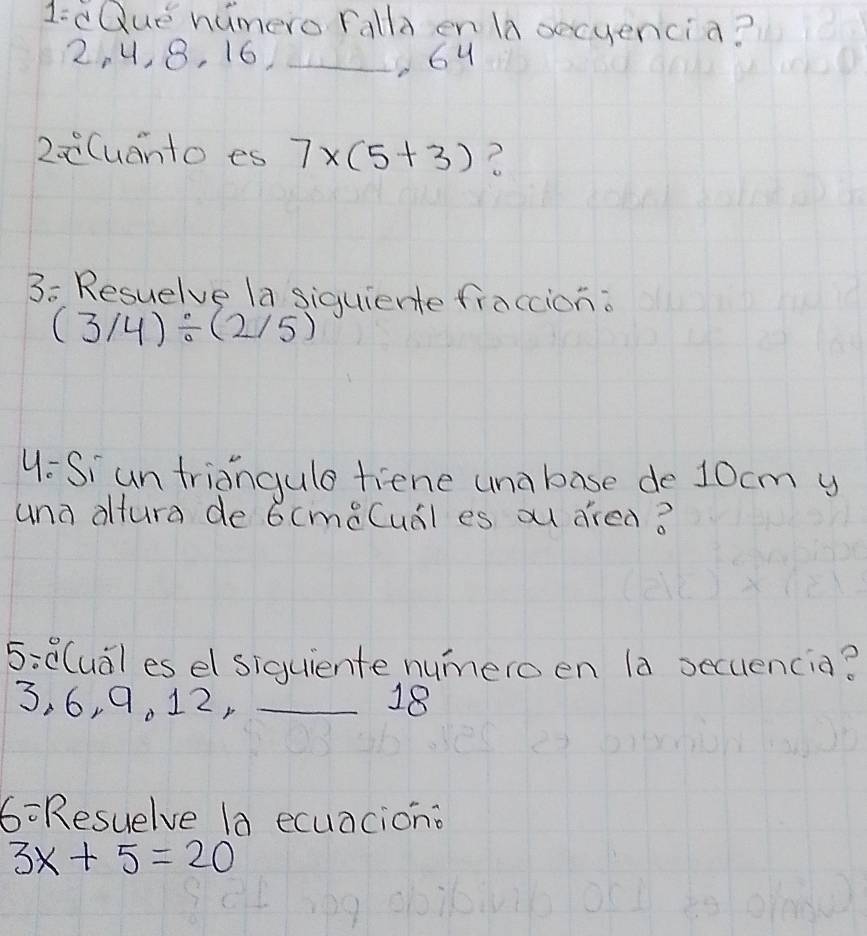 1=¿Qué número falta en la secuencia?
2, 4, 8, 16, ____, 64
2=¿Cuánto es 7x(5+3)?
3= Resuelve la siguiente fracción:
(3/4)÷(2/5)
4=Si un triángulo tiene una base de 10cm y
una altura de 6cm¿Cuál es su área?
5=¿Cuál es el siguiente número en la secuencia?
3, 6, 9, 12, ____ 18
6=Resuelve la ecuación:
3x + 5 = 20